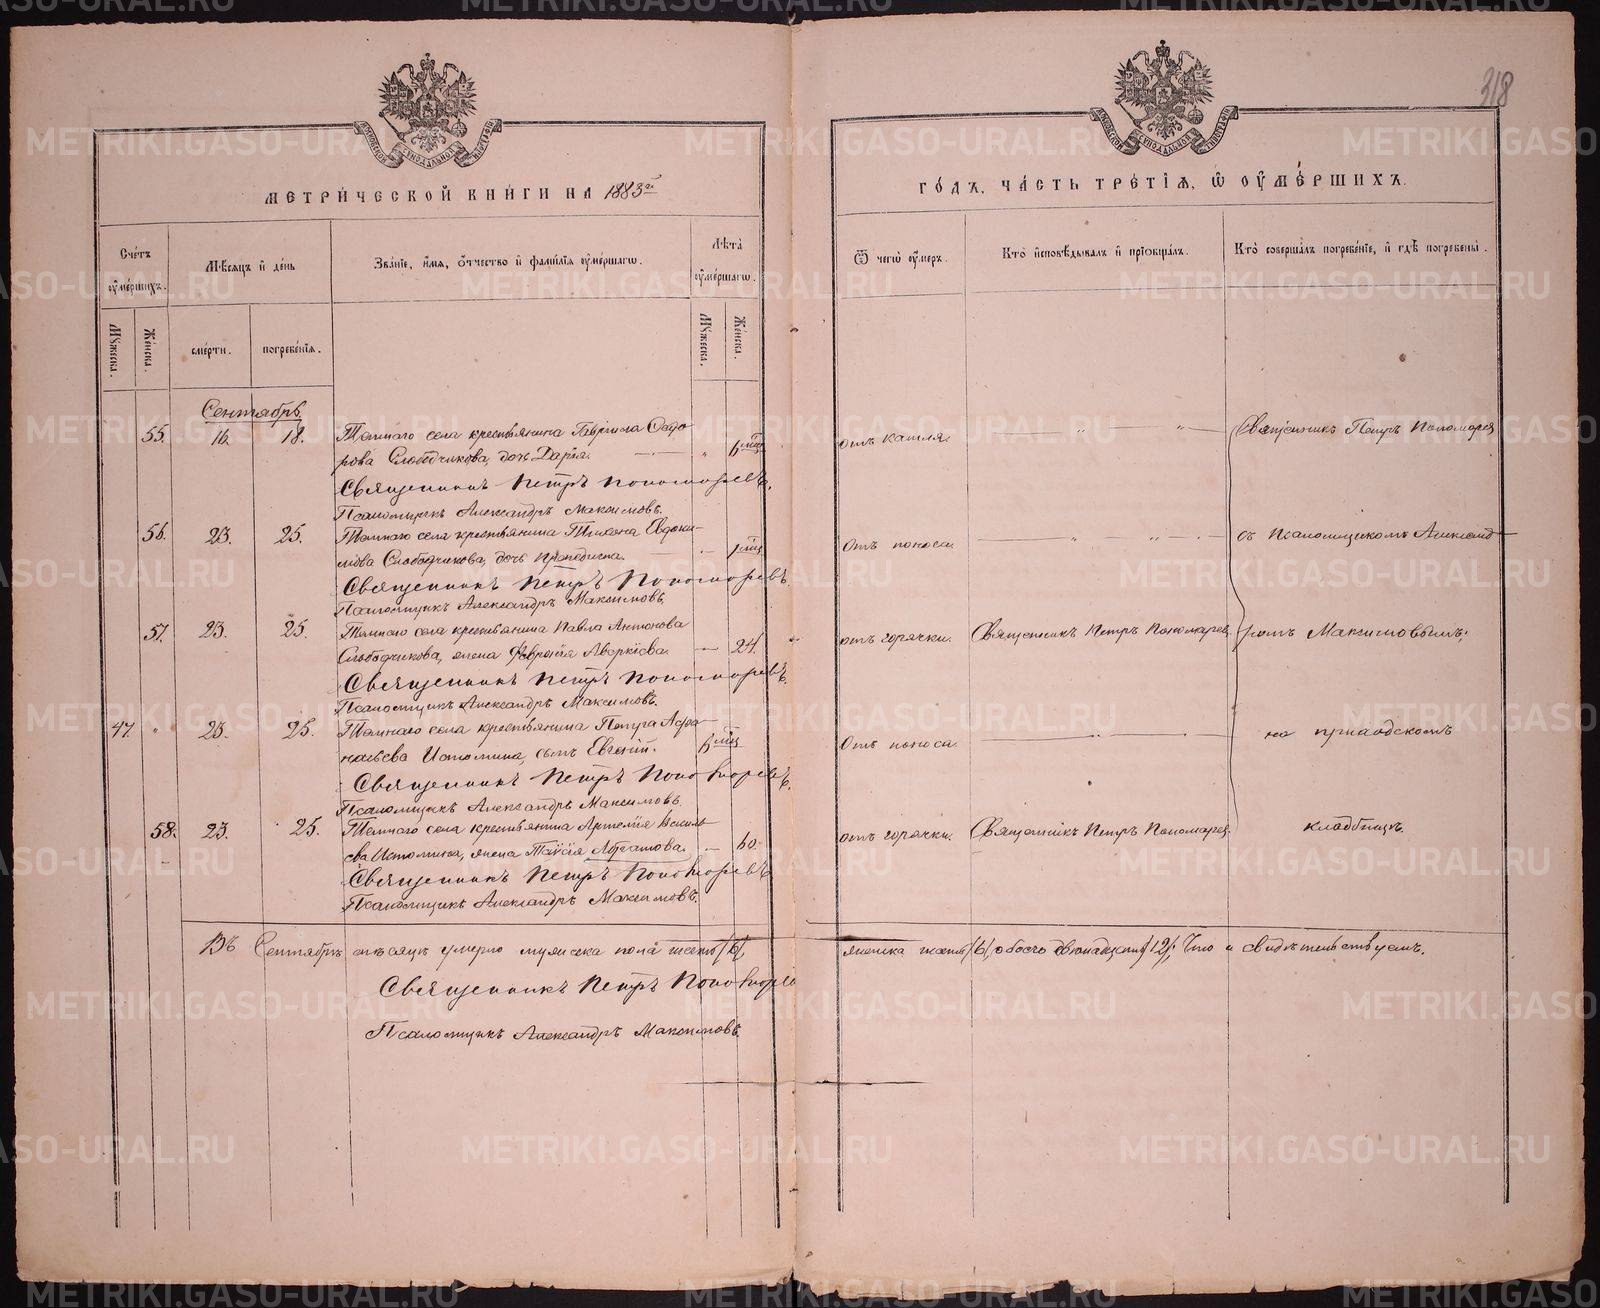 318
МЕТРИЧЕСКОЙ КНИГИ НА 1883й
ГОДЪ, ЧАСТЬ ТРЕТІЯ, Ѽ ОУМЕРШИХЪ.
Счетъ оумершихъ.
Мѣсяцъ и день
Званіе, имя, отчество и фамилія оумершагѡ.
Лѣта оумершагѡ.
Ѿ чегѡ оумеръ.
Кто исповѣдывалъ и пріобщалъ.
Кто совершалъ погребеніе, и гдѣ погребены.
Мужеска.
Женска.
смерти.
погребенія.
Мужеска.
Женска.
Сентябрь.
55. 16. 18. Темнаго села крестьянина Гаврiила Ѳедо
рова Слободчикова, дочь Дарія. 6 мцъ
отъ кашля. Священникъ Петръ Пономарев
Священникъ Петръ Пономоревъ.
Псаломщикъ Александръ Максимовъ.
56. 23. 25. Темнаго села крестьянина Тихона Евдоки-
мова Слободчикова, дочь 1 мцъ
отъ поноса. съ Псаломщикомъ Александ
Священникъ Петръ Пономоревъ
Псаломщикъ Александръ Максимовъ
57. 23. 25. Темнаго села крестьянина Павла Антонова
Слободчикова, жена Февронія Аверкіева. 24.
отъ горячки. Священникъ Петръ Пономарев. ромъ Максимовымъ;
Священникъ Петръ Пономоревъ
Псаломщикъ Александръ Максимовъ.
47. " 23. 25. Темнаго села крестьянина Петра Аѳа
насьева Истомина, сынъ Евгеній. 6 мцъ
отъ поноса. на приходскомъ
Священникъ Петръ Пономоревъ
Псаломщикъ Александръ Максимовъ
58. 23. 25. Темнаго села крестьянина Артемія Василь
ева Истомина, жена Таисія Абрамова. 60.
отъ горячки. Священникъ Петръ Пономарев. кладбищѣ.
Священникъ Петръ Пономоревъ
Псаломщикъ Александръ Максимовъ.
Въ Сентябрѣ мѣсяцѣ умерло мужска пола шесть /6/,
женска шесть /6/, обоего двѣнадцать /12/; Что и свидѣтельствуемъ.
Священникъ Петръ Пономорев
Псаломщикъ Александръ Максимовъ.
METRIKI.GASO-URAL.RU